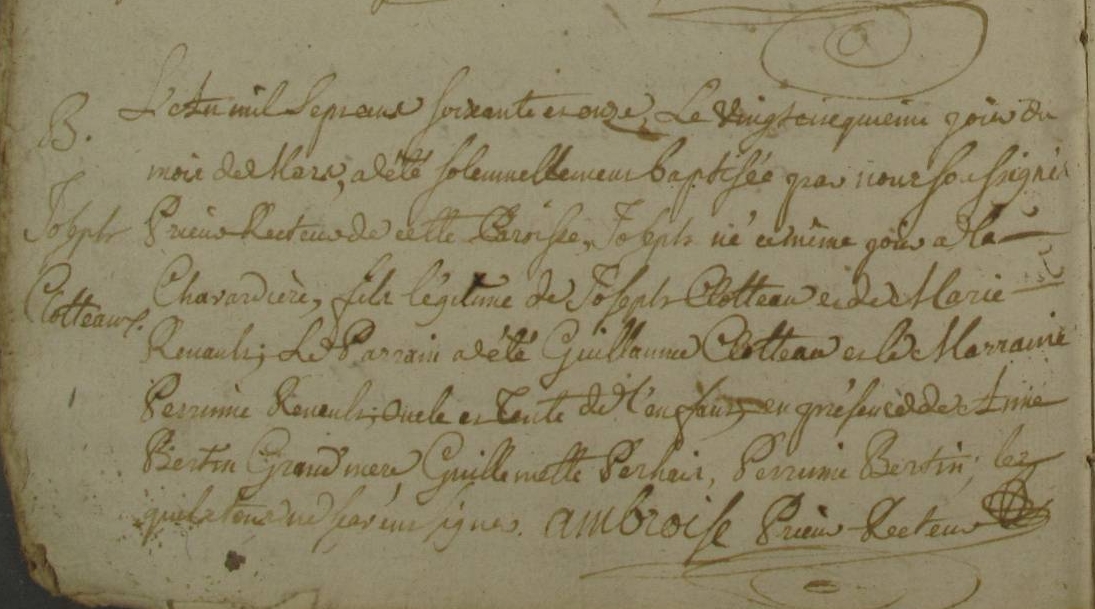 B. L'An mil Sept cens soixante et onze, Le vingt cinquieme jour du
mois de Mars, a été solemnellement baptisée par nous soussigné
Joseph Prieur Recteur de cette Paroisse, Joseph né ce même jour a la
Clotteau. Chavardière, fils légitime de Joseph Clotteau et de Marie
Renault; Le Parrain a été Guillaume Clotteau et la Marraine
Perrinne Renault; oncle et tente de l'enfant, en présence de Anne
Bertin Grand'mere, Guillemette Perhais, Perrinne Bertin; les
quels tous ne sçavent signer. ambroise Prieur Recteur